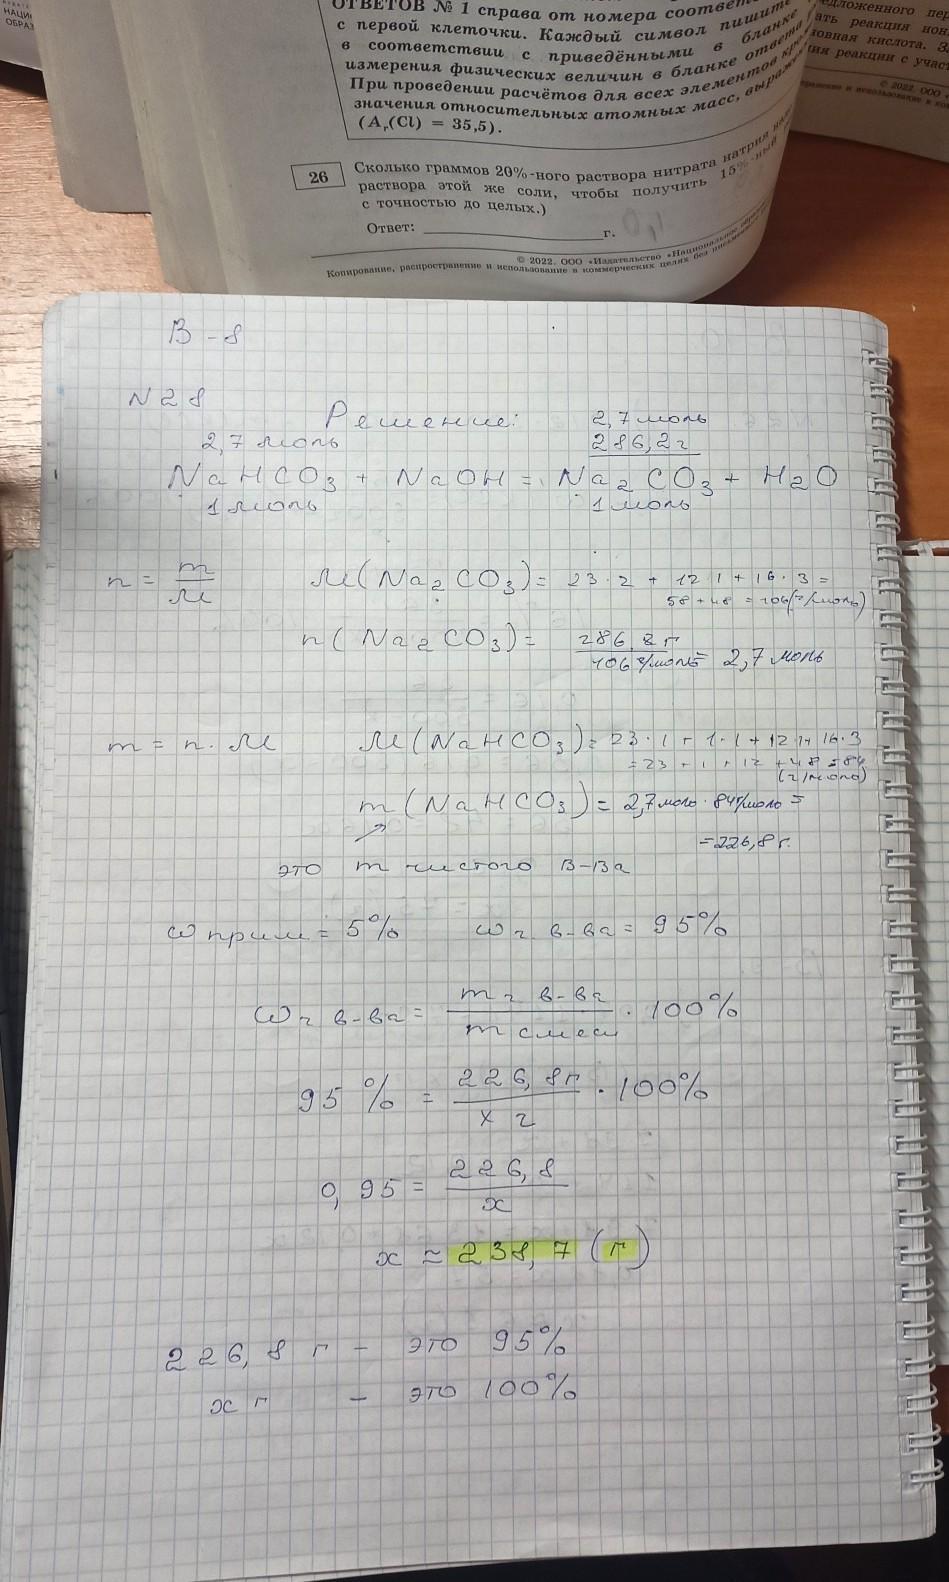 НАЦИ
ОБРАЗ
ОТВЕТОВ № 1 справа от номера
с первой клеточки. Каждый символ пишите
в соответствии с приведёнными в бланке
измерения физических величин в бланке ответа
При проведении расчётов для всех элементов
значения относительных атомных масс,
(Ar(Cl) = 35,5).
ать реакция
кислота.
ия реакции с
© 2022. ООО
26 Сколько граммов 20%-ного раствора нитрата натрия
раствора этой же соли, чтобы получить 15%-ный
с точностью до целых.)
Ответ: ____________ г.
© 2022. ООО «Издательство «Национальное
Копирование, распространение и использование в коммерческих целях без
В - 8
N 28
Решение:
2,7 моль 2,7 моль
286,2 г
NaHCO3 + NaOH = Na2CO3 + H2O
1 моль 1 моль
n = m/M M(Na2CO3) = 23·2 + 12·1 + 16·3 =
58 + 48 = 106 (г/моль)
n(Na2CO3) = 286,2 г / 106 г/моль = 2,7 моль
m = n·M M(NaHCO3) = 23·1 + 1·1 + 12·1 + 16·3
= 23 + 1 + 12 + 48 = 84
(г/моль)
m(NaHCO3) = 2,7 моль · 84 г/моль =
= 226,8 г.
это m чистого в-ва
ω прим = 5% ω ч в-ва = 95%
ω ч в-ва = m ч в-ва / m смеси · 100%
95 % = 226,8 г / х г · 100%
0,95 = 226,8 / х
х ≈ 238,7 (г)
226,8 г - это 95%
х г - это 100%